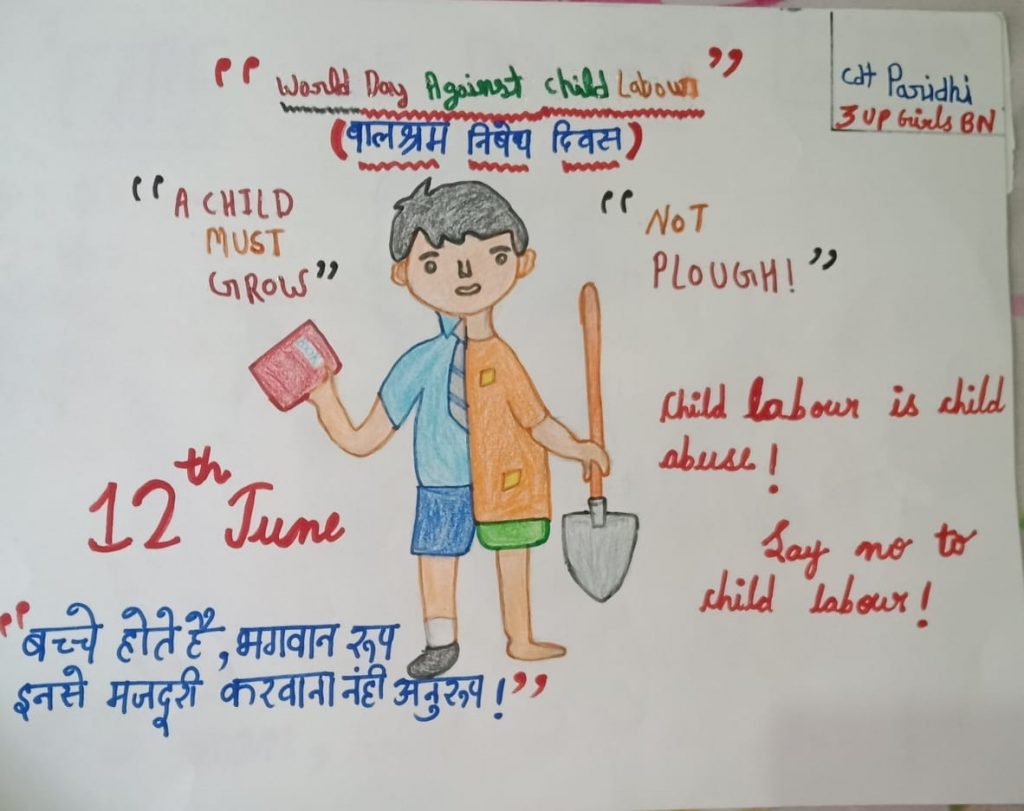 "World Day Against Child Labour"
(बालश्रम निषेध दिवस)
Cdt Paridhi
3 UP Girls BN
"A CHILD
MUST
GROW"
"NOT
PLOUGH!"
BOOK
Child labour is child
abuse!
Say no to
child labour!
12th June
"बच्चे होते है, भगवान रूप
इनसे मजदूरी करवाना नंही अनुरूप!"